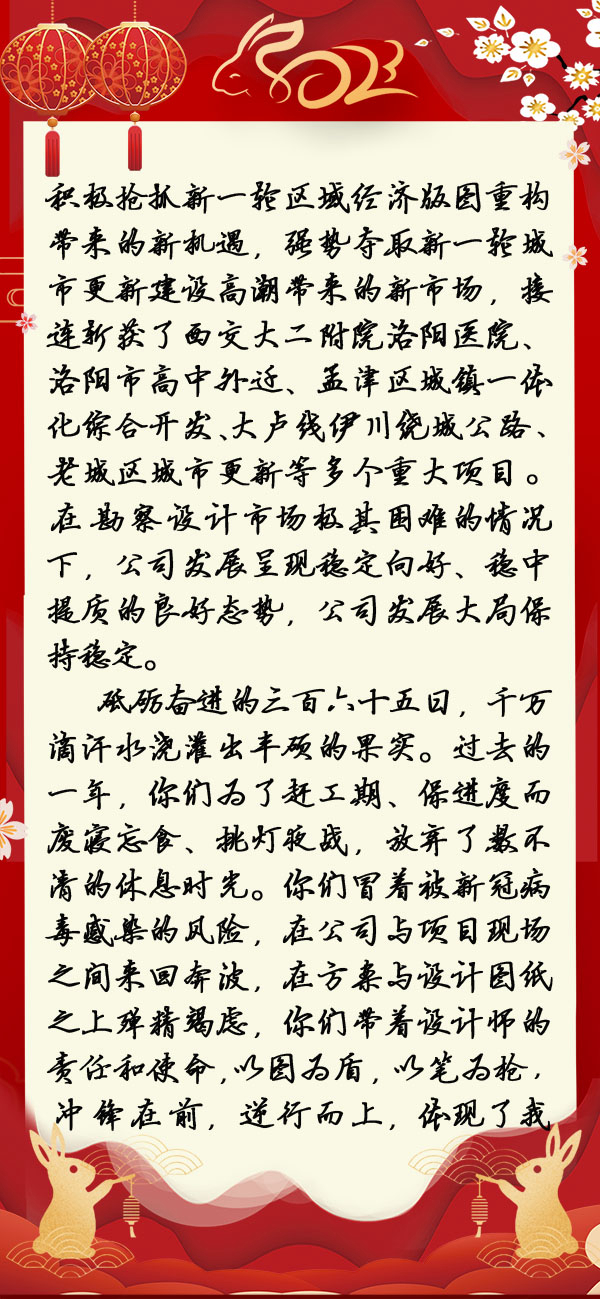 2023
积极抢抓新一轮区域经济版图重构
带来的新机遇，强势夺取新一轮城
市更新建设高潮带来的新市场，接
连斩获了西交大二附院洛阳医院、
洛阳市高中外迁、孟津区城镇一体
化综合开发、大卢线伊川绕城公路、
老城区城市更新等多个重大项目。
在勘察设计市场极其困难的情况
下，公司发展呈现稳定向好、稳中
提质的良好态势，公司发展大局保
持稳定。
砥砺奋进的三百六十五日，千万
滴汗水浇灌出丰硕的果实。过去的
一年，你们为了赶工期、保进度而
废寝忘食、挑灯夜战，放弃了数不
清的休息时光。你们冒着被新冠病
毒感染的风险，在公司与项目现场
之间来回奔波，在方案与设计图纸
之上殚精竭虑，你们带着设计师的
责任和使命，以图为盾，以笔为枪，
冲锋在前，逆行而上，体现了我